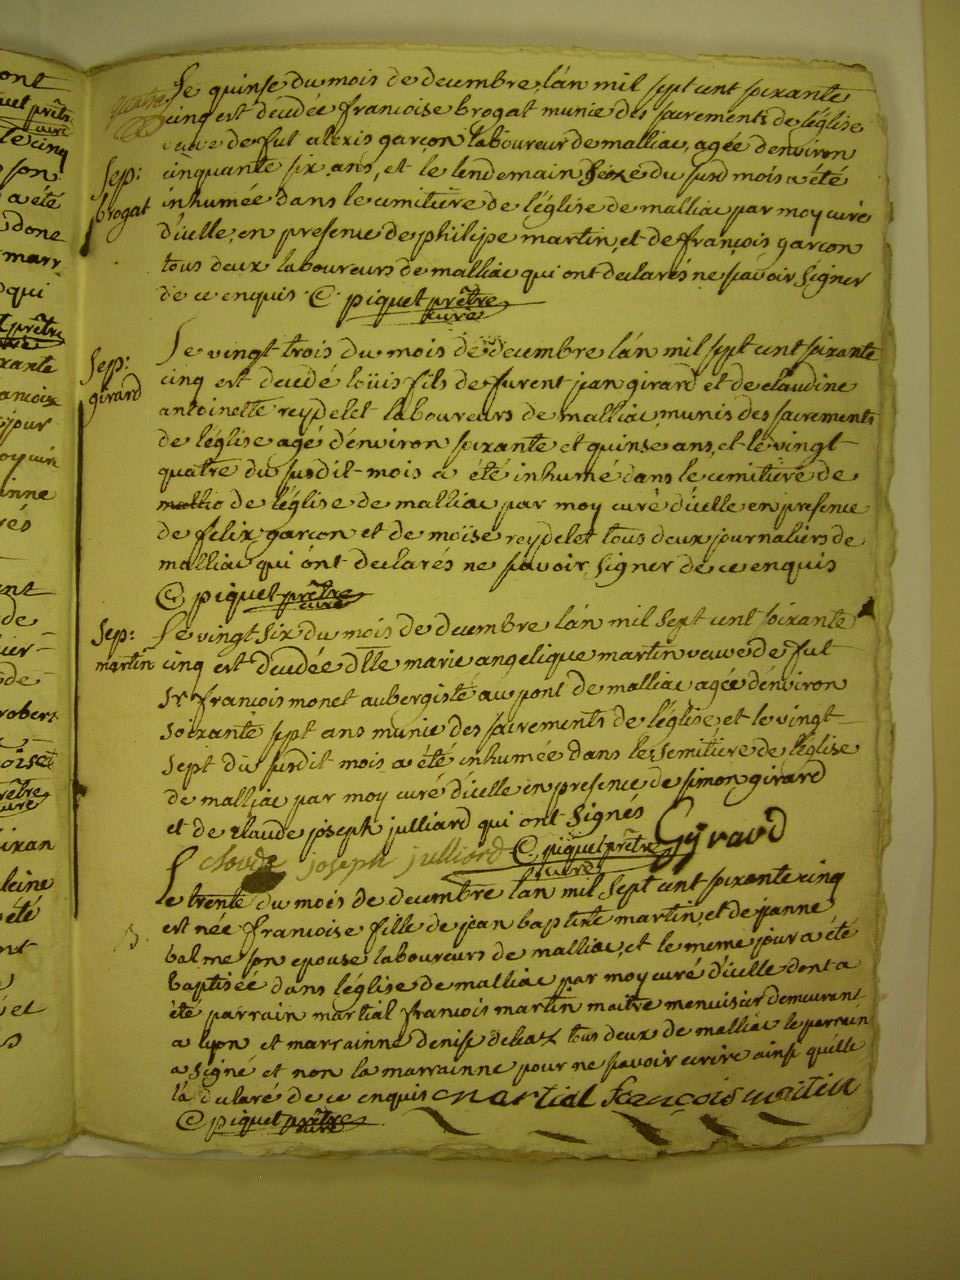 Le quinse du mois de decembre l'an mil sept cent soixante
cinq est decedée francoise brogat munie des sacrements de l'église
veuve de fut alexis garcon laboureur de malliac, agée d'environ
Sep:
brogat
cinquante six ans, et le lendemain seixe du susd mois a été
inhumée dans le cimitiere de l'église de malliac par moy curé
d'icelle, en presence de philipe martin, et de françois garcon
tous deux laboureurs de malliac qui ont declarés ne scavoir signer
de ce enquis. C piquet prêtre
curé
Sep:
girard
Le vingt trois du mois de decembre l'an mil sept cent soixante
cinq est decedé loüis fils de furent jean girard et de claudine
antoinette reydelet laboureurs de malliac munis des sacrements
de l'église agé d'environ soixante et quinse ans, et le vingt
quatre du susdit mois a été inhumé dans le cimitiere de
mallia de l'église de malliac par moy curé d'icelle en presence
de felix garcon et de moïse reydelet tous deux journaliers de
malliac qui ont declarés ne scavoir signer de ce enquis
C piquet prêtre
curé
Sep:
martin
Le vingt six du mois de decembre l'an mil sept cent soixante
cinq est decedée dlle marie angelique martin veuve de fut
sr francois monet aubergiste au pont de malliac agée d'environ
soixante sept ans munie des sacrements de l'église, et le vingt
sept du susdit mois a été inhumée dans le semitiere de l'église
de malliac par moy curé d'icelle en presence de simon girard
et de claude joseph julliard qui ont signés
cloude joseph julliard C piquet prêtre Gyrard
curé
Le trente du mois de decembre l'an mil sept cent soixante cinq
B.
est née francoise fille de jean baptiste martin, et de jeanne
balme son epouse laboureurs de malliac, et le meme jour a été
baptisée dans l'église de malliac par moy curé d'icelle dont a
été parrain martial francois martin maitre menuisier demeurant
a lyon et marrainne denise delax tous deux de malliac le parrain
a signé et non la marrainne pour ne scavoir ecrire ainsi qu'elle
la declaré de ce enquis martial françois martin
C piquet prêtre
curé